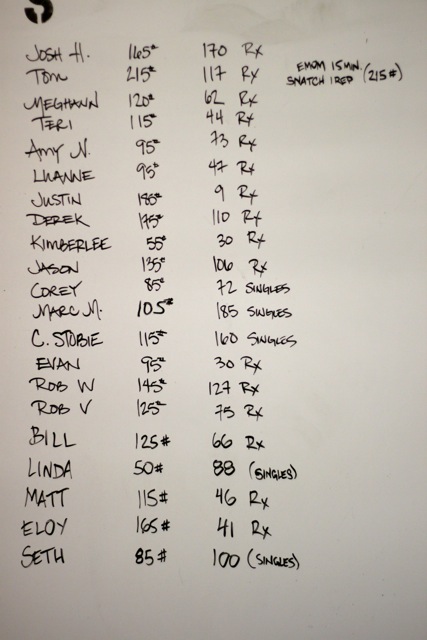 JOSH H. 165# 170 Rx
TOM 215# 117 Rx EMOM 15 MIN.
SNATCH 1 REP (215#)
MEGHANN 120# 62 Rx
TERI 115# 44 Rx
AMY N. 95# 73 Rx
LUANNE 95# 47 Rx
JUSTIN 185# 9 Rx
DEREK 175# 110 Rx
KIMBERLEE 55# 30 Rx
JASON 135# 106 Rx
COREY 85# 72 SINGLES
MARC M. 105# 185 SINGLES
C. STOBIE 115# 160 SINGLES
EVAN 95# 30 Rx
ROB W 145# 127 Rx
ROB V 125# 75 Rx
BILL 125# 66 Rx
LINDA 50# 88 (SINGLES)
MATT 115# 46 Rx
ELOY 165# 41 Rx
SETH 85# 100 (SINGLES)